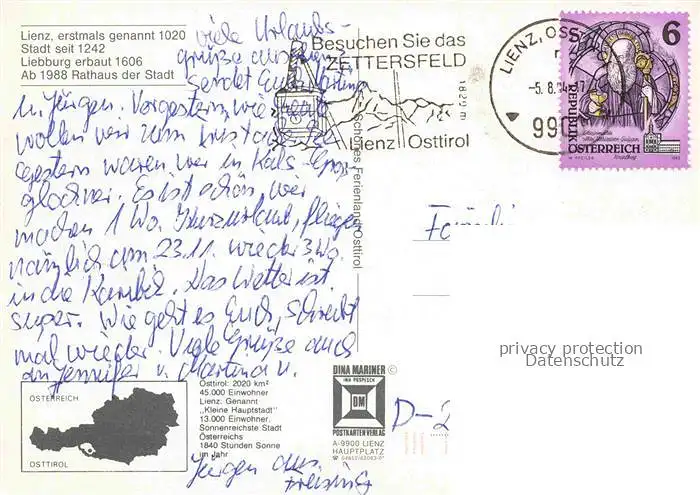 Lienz, erstmals genannt 1020
Stadt seit 1242
Liebburg erbaut 1606
Ab 1988 Rathaus der Stadt
viele Urlaubs-
grüße aus
sendet Euch Martina
u. Jürgen. Vorgestern, wie
wollen wir zum
gestern waren wir in Kals - Groß-
glockner. Es ist schön, wir
machen 1 Wo. Kurzurlaub, fliegen
nämlich am 23.11. wieder 3 Wo.
in die Karibik. Das Wetter ist
super. Wie geht es Euch, schreibt
mal wieder. Viele Grüße auch
an Jennifer v. Martina u.
Jürgen aus
Freising
Besuchen Sie das
ZETTERSFELD
1820 m
Lienz Osttirol
LIENZ, OST
-5. 8.
990
6
REPUBLIK
ÖSTERREICH
Schönes Ferienland Osttirol
D-2
privacy protection
Datenschutz
ÖSTERREICH
OSTTIROL
Osttirol: 2020 km²
45.000 Einwohner
Lienz: Genannt
„Kleine Hauptstadt"
13.000 Einwohner,
Sonnenreichste Stadt
Österreichs
1840 Stunden Sonne
im Jahr
DINA MARINER ©
INH POSPESCH
DM
POSTKARTENVERLAG
A-9900 LIENZ
HAUPTPLATZ